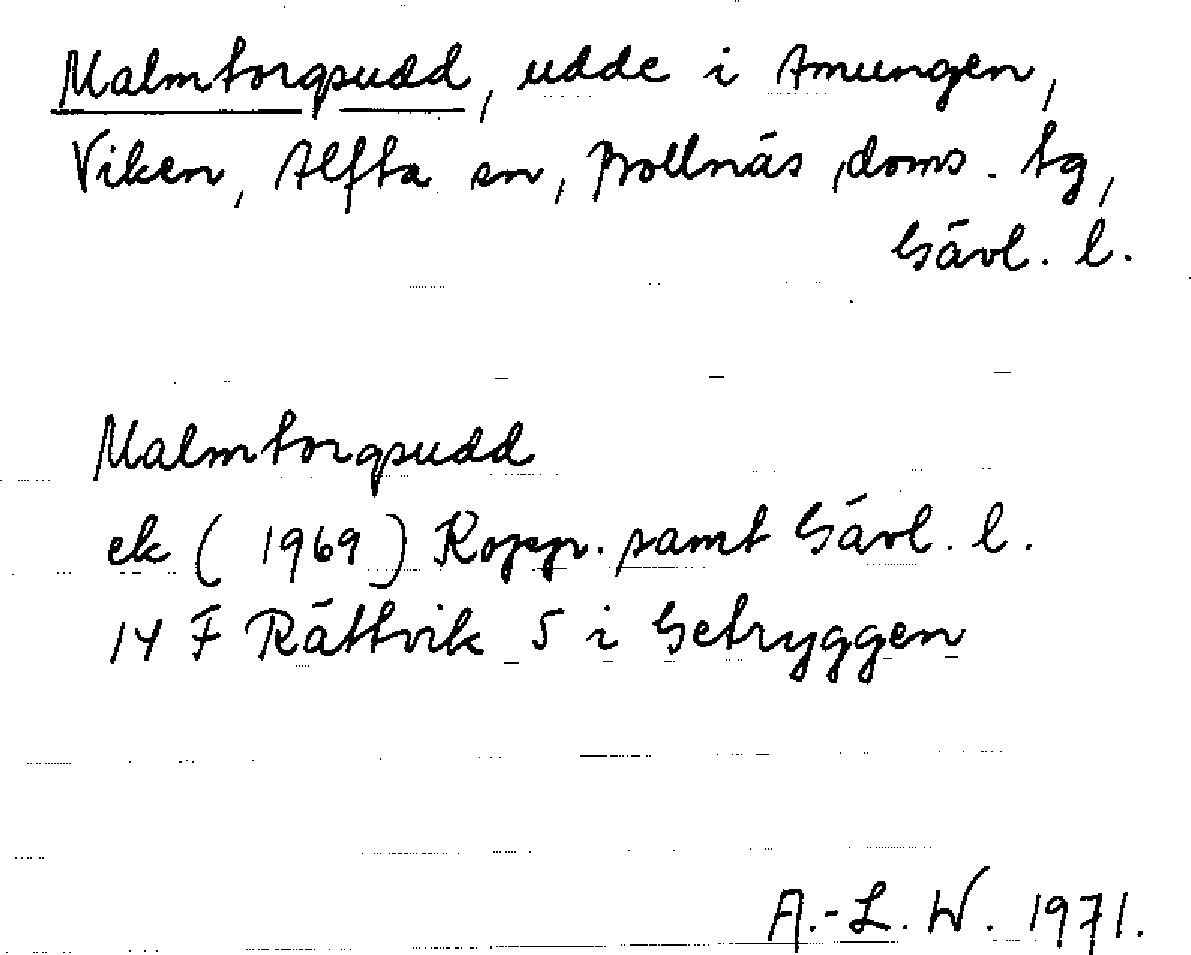 Malmtorgsudd, udde i Amungen,
Viken, Alfta sn, Bollnäs doms. tg,
Gävl. l.
Malmtorgsudd
ek (1969) Kopp. samt Gävl. l.
14 F Rättvik 5 i Getryggen
A.-L. W. 1971.